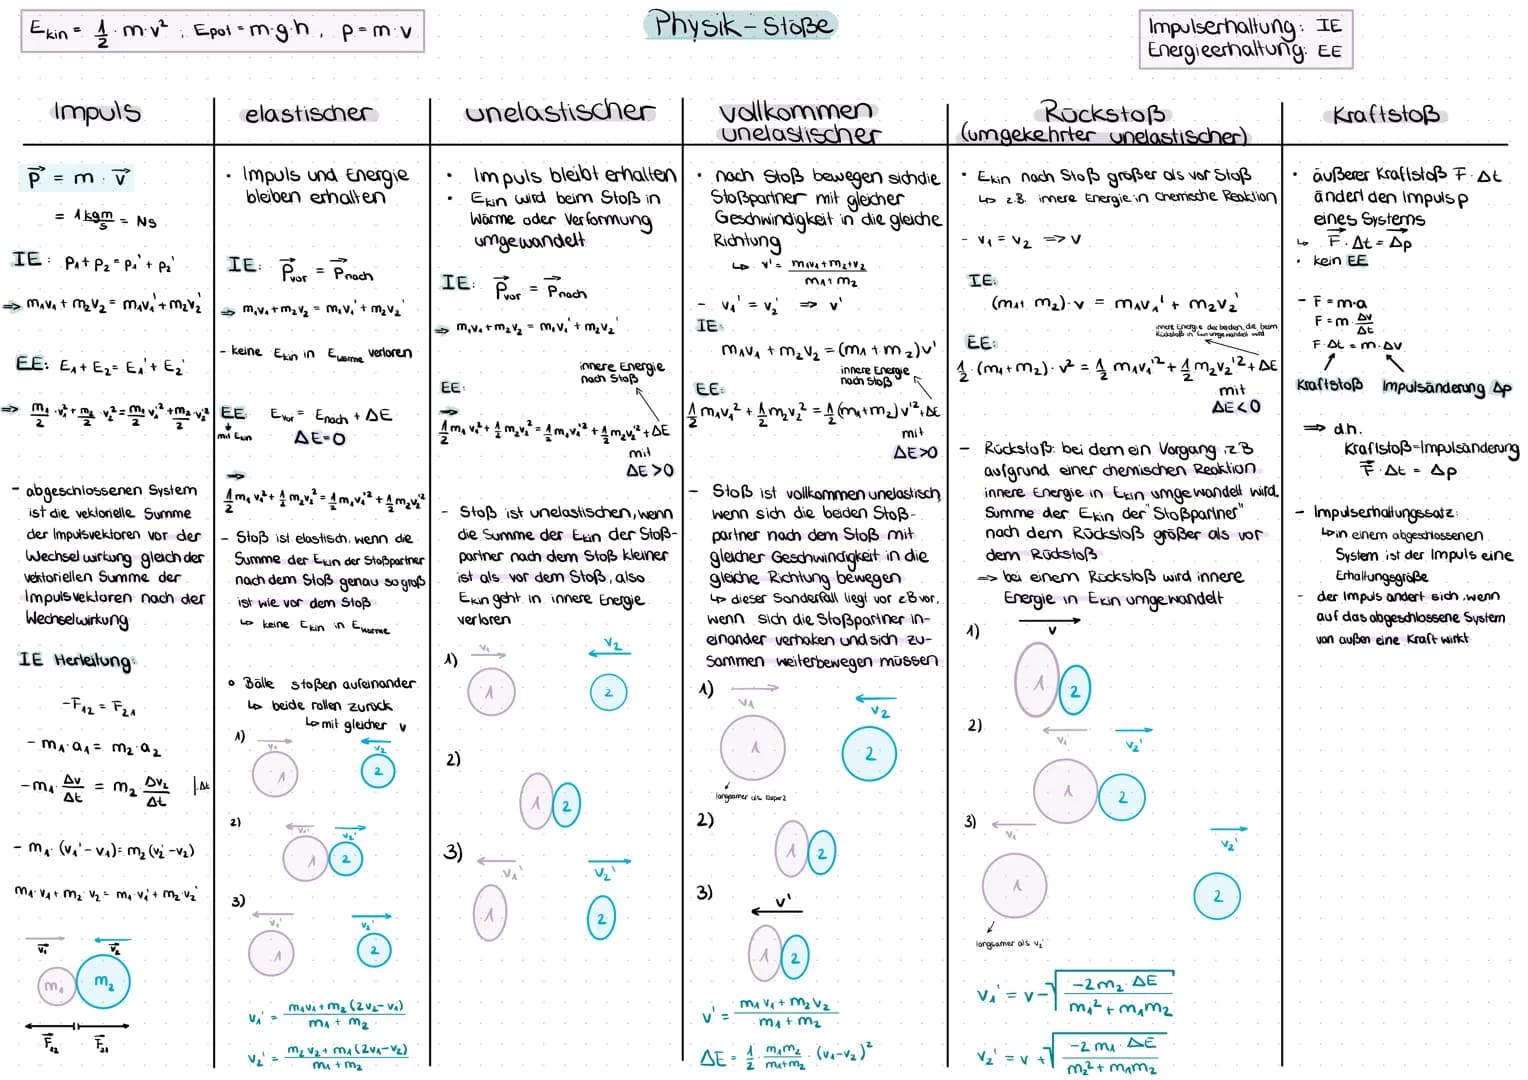 E_kin = 1/2 · m·v² , E_pot = m·g·h , p = m·v
Physik - Stöße
Impulserhaltung: IE
Energieerhaltung: EE
Impuls
p⃗ = m · v⃗
= 1 kgm/s = Ns
IE: p₁+p₂ = p₁' + p₂'
⇒ m₁v₁ + m₂v₂ = m₁v₁' + m₂v₂'
EE: E₁ + E₂ = E₁' + E₂'
⇒ m₁/2 · v₁² + m₂/2 · v₂² = m₁/2 v₁'² + m₂/2 · v₂'²
- abgeschlossenen System
ist die vektorielle Summe
der Impulsvektoren vor der
Wechselwirkung gleich der
vektoriellen Summe der
Impulsvektoren nach der
Wechselwirkung
IE Herleitung:
-F₁₂ = F₂₁
- m₁·a₁ = m₂·a₂
-m₁· Δv/Δt = m₂ Δv₂/Δt |·Δt
- m₁· (v₁' - v₁) = m₂ (v₂' - v₂)
m₁·v₁ + m₂·v₂ = m₁·v₁' + m₂·v₂'
v⃗₁ v⃗₂
m₁ m₂
F⃗₁₂ F⃗₂₁
elastischer
· Impuls und Energie
bleiben erhalten
IE: p⃗vor = p⃗nach
⇒ m₁v₁ + m₂v₂ = m₁v₁' + m₂v₂'
- keine E_kin in E_wärme verloren
EE: E_vor = E_nach + ΔE
mit E_kin ΔE=0
⇒
1/2 m₁v₁² + 1/2 m₂v₂² = 1/2 m₁v₁'² + 1/2 m₂v₂'²
- Stoß ist elastisch, wenn die
Summe der E_kin der Stoßpartner
nach dem Stoß genau so groß
ist wie vor dem Stoß
↳ keine E_kin in E_wärme
∘ Bälle stoßen aufeinander
↳ beide rollen zurück
↳ mit gleicher v
1) v₁ v₂
1 2
2) v₁' v₂'
1 2
3) v₁' v₂'
1 2
v₁' = (m₁v₁ + m₂(2v₂ - v₁))/(m₁ + m₂)
v₂' = (m₂v₂ + m₁(2v₁ - v₂))/(m₁ + m₂)
unelastischer
· Impuls bleibt erhalten
· E_kin wird beim Stoß in
Wärme oder Verformung
umgewandelt
IE: p⃗vor = p⃗nach
⇒ m₁v₁ + m₂v₂ = m₁v₁' + m₂v₂'
innere Energie
nach Stoß
EE:
⇒
1/2 m₁v₁² + 1/2 m₂v₂² = 1/2 m₁v₁'² + 1/2 m₂v₂'² + ΔE
mit
ΔE>0
- Stoß ist unelastischen, wenn
die Summe der E_kin der Stoß-
partner nach dem Stoß kleiner
ist als vor dem Stoß, also
E_kin geht in innere Energie
verloren
1) v₁ v₂
1 2
2)
1 2
3) v₁' v₂'
1 2
vollkommen
unelastischer
· nach Stoß bewegen sich die
Stoßpartner mit gleicher
Geschwindigkeit in die gleiche
Richtung
↳ v' = (m₁v₁ + m₂v₂)/(m₁ + m₂)
- v₁' = v₂' ⇒ v'
IE:
m₁v₁ + m₂v₂ = (m₁ + m₂)v'
innere Energie
nach Stoß
EE:
1/2 m₁v₁² + 1/2 m₂v₂² = 1/2 (m₁+m₂)v'² + ΔE
mit
ΔE>0
- Stoß ist vollkommen unelastisch,
wenn sich die beiden Stoß-
partner nach dem Stoß mit
gleicher Geschwindigkeit in die
gleiche Richtung bewegen
↳ dieser Sonderfall liegt vor zB vor,
wenn sich die Stoßpartner in-
einander verhaken und sich zu-
sammen weiterbewegen müssen
1) v₁ v₂
1 2
langsamer als Körper 2
2)
1 2
3) v'
1 2
v' = (m₁v₁ + m₂v₂)/(m₁ + m₂)
ΔE = 1/2 · m₁m₂/(m₁+m₂) · (v₁-v₂)²
Rückstoß
(umgekehrter unelastischer)
· E_kin nach Stoß größer als vor Stoß
↳ z.B. innere Energie in chemische Reaktion
- v₁ = v₂ ⇒ v
IE:
(m₁+ m₂)·v = m₁v₁' + m₂v₂'
innere Energie der beiden, die beim
Rückstoß in E_kin umgewandelt wird
EE:
1/2 · (m₁+m₂)·v² = 1/2 m₁v₁'² + 1/2 m₂v₂'² + ΔE
mit
ΔE<0
- Rückstoß: bei dem ein Vorgang z.B
aufgrund einer chemischen Reaktion
innere Energie in E_kin umgewandelt wird.
Summe der E_kin der "Stoßpartner"
nach dem Rückstoß größer als vor
dem Rückstoß
⇒ bei einem Rückstoß wird innere
Energie in E_kin umgewandelt
1) v
1 2
2) v₁' v₂'
1 2
3) v₁' v₂'
1 2
langsamer als v₂'
v₁' = v - √(-2m₂·ΔE/(m₁² + m₁m₂))
v₂' = v + √(-2m₁·ΔE/(m₂² + m₁m₂))
Kraftstoß
· äußerer Kraftstoß F·Δt
ändert den Impuls p
eines Systems
↳ F⃗·Δt = Δp⃗
· kein EE
- F = m·a
F = m· Δv/Δt
F·Δt = m·Δv
Kraftstoß Impulsänderung Δp
⇒ d.h.
Kraftstoß=Impulsänderung
F⃗·Δt = Δp
- Impulserhaltungssatz:
↳ in einem abgeschlossenen
System ist der Impuls eine
Erhaltungsgröße
- der Impuls ändert sich, wenn
auf das abgeschlossene System
von außen eine Kraft wirkt